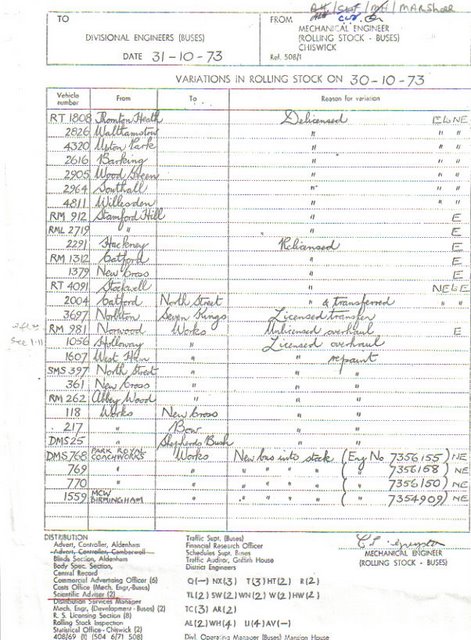 TO
DIVISIONAL ENGINEERS (BUSES)
DATE 31-10-73
MARSHALL
FROM
MECHANICAL ENGINEER
(ROLLING STOCK - BUSES)
CHISWICK
Ref. 508/1
VARIATIONS IN ROLLING STOCK ON 30-10-73
Vehicle number From To Reason for variation
RT 1808 Thornton Heath Delicensed ELNE
2826 Walthamstow " " "
4320 Upton Park " " "
2616 Barking " " "
2905 Wood Green " " "
2964 Southall " " "
4811 Willesden " " "
RM 912 Stamford Hill " E
RML 2719 " " E
2291 Hackney Relicensed E
RM 1312 Catford " E
1379 New Cross " E
RT 4091 Stockwell " NELE
2004 Catford North Street " & transferred " "
3697 Norbiton Seven Kings Licensed transfer
RM 981 Norwood Works Unlicensed overhaul E
See 1-11
1056 Holloway " Licensed overhaul
1607 West Ham " " repaint
SMS 397 North Street " " "
361 New Cross " " "
RM 262 Abbey Wood " " "
118 Works New Cross " "
217 " Bow " "
DMS 25 " Shepherds Bush " "
DMS 768 PARK ROYAL COACHWORKS Works New bus into stock (Eng No 7356155) NE
769 " " " " " " ( " 7356158) NE
770 " " " " " " ( " 7356150) NE
1559 MCW BIRMINGHAM " " " " " ( " 7354909) NE
MECHANICAL ENGINEER
(ROLLING STOCK - BUSES)
DISTRIBUTION
Advert, Controller, Aldenham
Advert, Controller, Camberwell
Blinds Section, Aldenham
Body Spec, Section,
Central Record
Commercial Advertising Officer (6)
Costs Office (Mech. Engr-Buses)
Scientific Adviser (2)
Distribution Services Manager
Mech. Engr, (Development - Buses) (2)
R. S. Licensing Section (8)
Rolling Stock Inspection
Statistical Office - Chiswick (2)
408/69 (1) (504 6/71 508)
Traffic Supt, (Buses)
Financial Research Officer
Schedules Supt. Buses
Traffic Auditor, Griffith House
District Engineers
Q(—) NX(3) T(3) HT(2) R(2)
TL(2) SW(2) WN(2) W(2) HW(2)
TC(3) AR(2)
AL(2) WH(4) U(4) AV(—)
Divl. Operating Manager (Buses) Mansion House